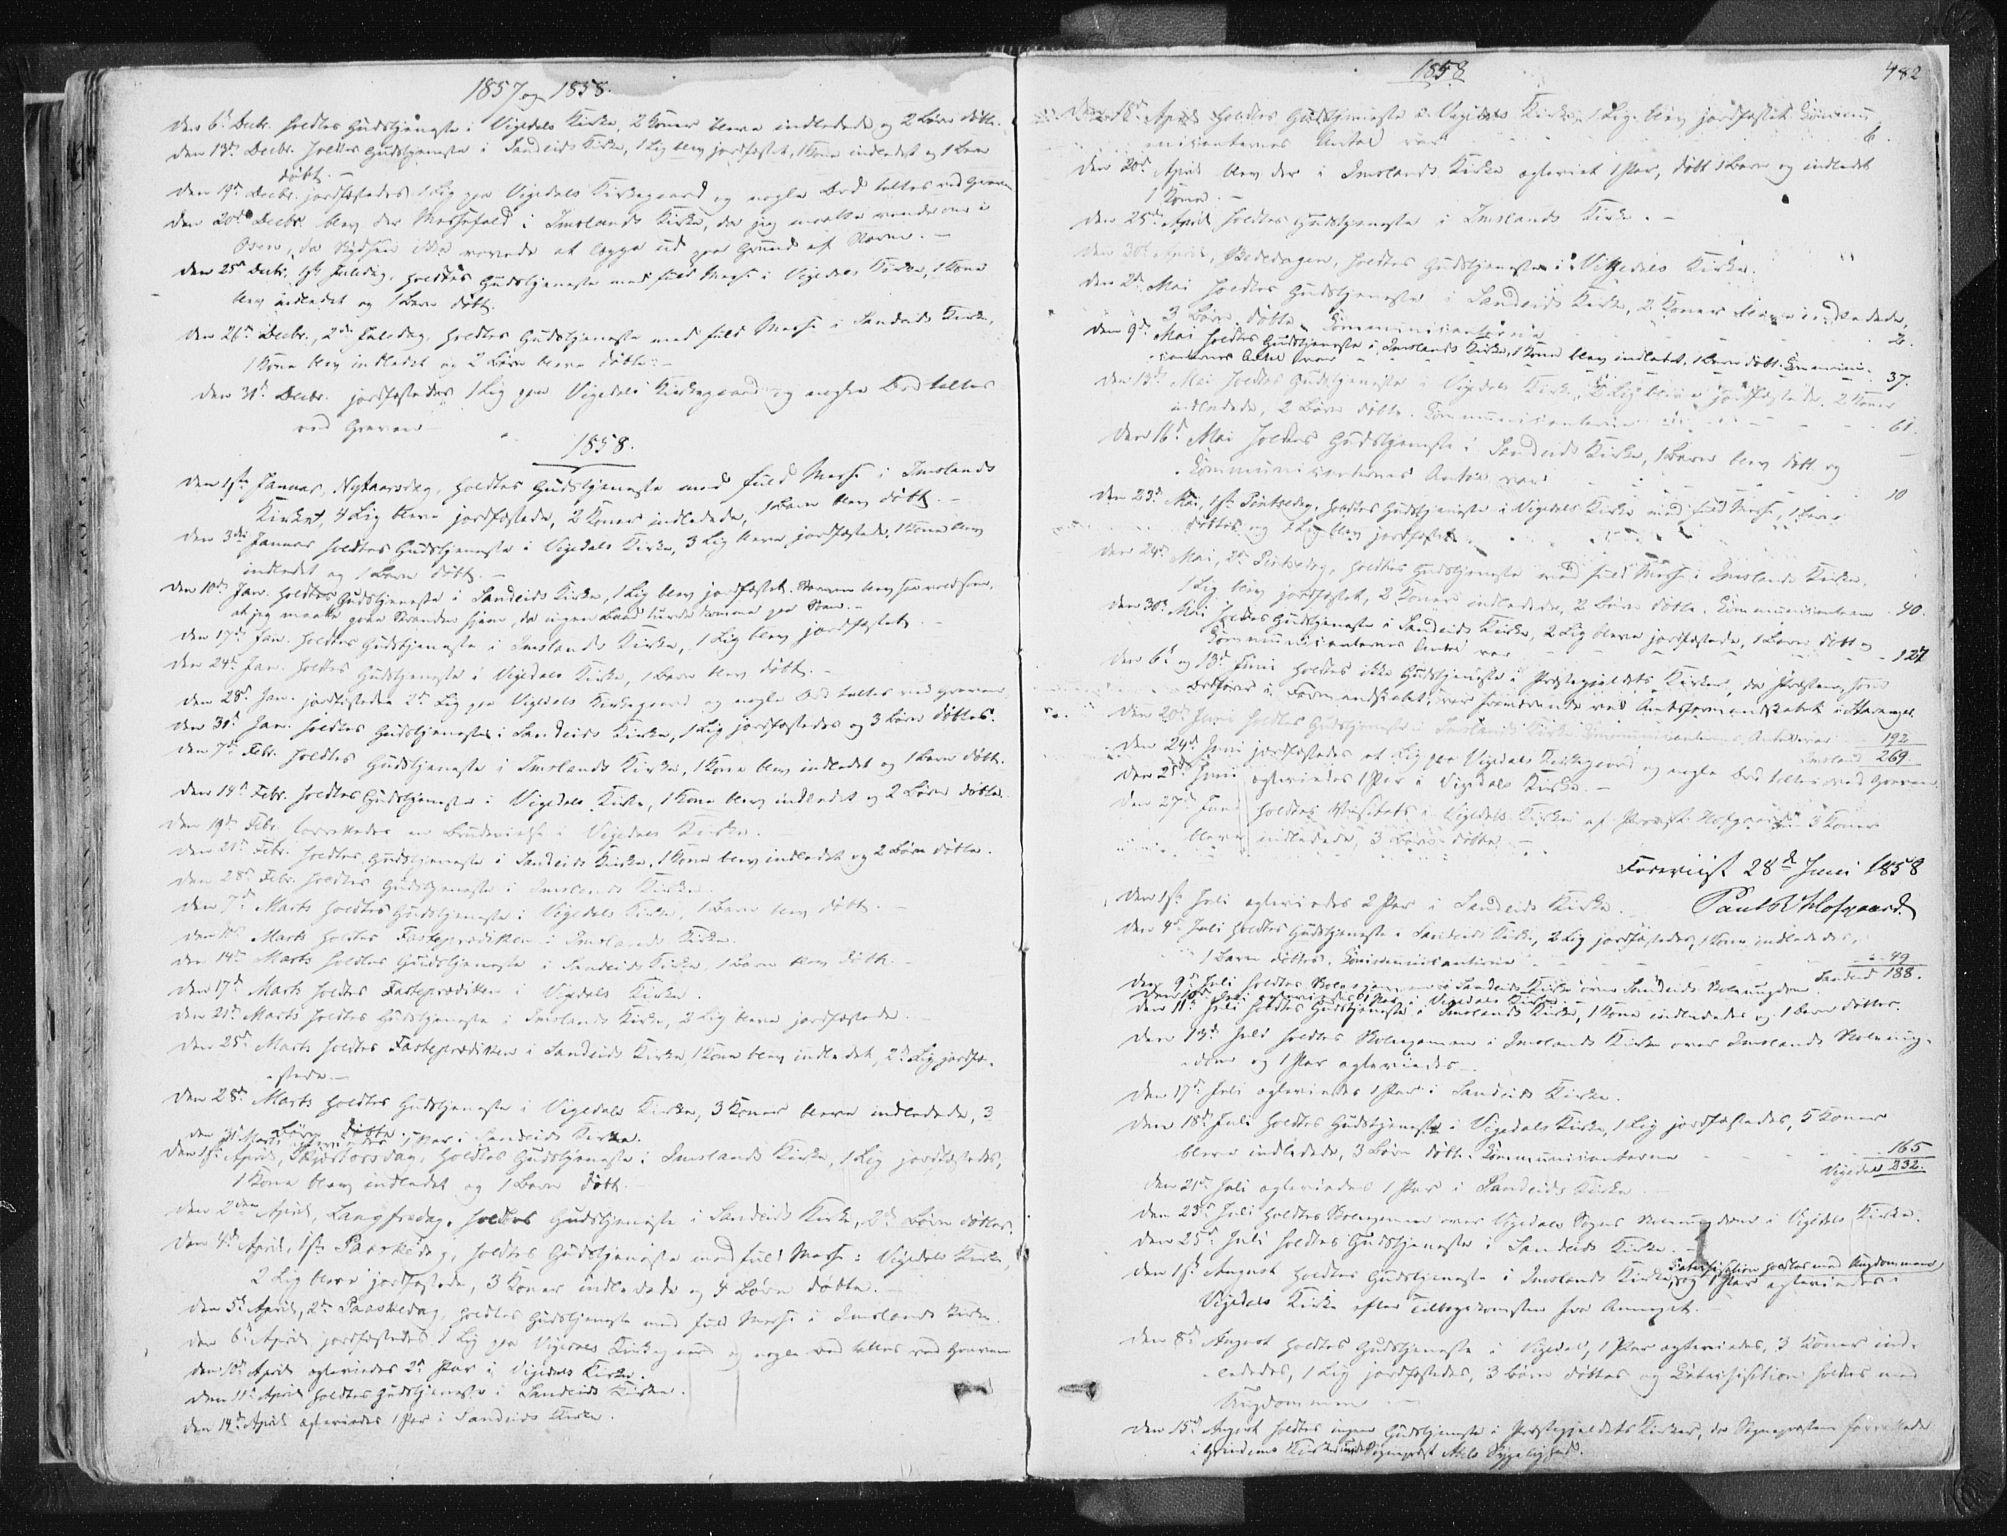 1857 og 1858.
Den 6te Decbr. holdtes Gudstjeneste i Vigedals Kirke, 2 Koner bleve indledede og 2 Børn døbte.
Den 13de Decbr. holdtes Gudstjeneste i Sandeids Kirke, 1 Lig blev jordfæstet, 1 Kone indledet og 1 Barn
døbt. —
Den 19de Decbr. jordfæstedes 1 Lig paa Vigedals Kirkegaard og nogle Ord taltes ved Graven
Den 20de Decbr. blev der Messefald i Imslands Kirke, da jeg maatte vende om i
Osen, da Skydsen ikke vovede at lægge ud paa Grund af Storm. —
Den 25de Decbr. 1ste Juledag, holdtes Gudstjeneste med fuld Messe i Vigedals Kirke, 1 Kone
blev indledet og 1 Barn døbt.
Den 26de Decbr., 2den Juledag, holdtes Gudstjeneste med fuld Messe i Sandeids Kirke,
1 Kone blev indledet og 2 Børn bleve døbte. —
Den 31te Decbr. jordfæstedes 1 Lig paa Vigedals Kirkegaard og nogle Ord taltes
ved Graven
1858.
Den 1ste Januar, Nytaarsdag, holdtes Gudstjeneste med fuld Messe i Imslands
Kirke, 4 Lig bleve jordfæstede, 2 Koner indledede, 1 Barn blev døbt. —
Den 3die Januar holdtes Gudstjeneste i Vigedals Kirke, 3 Lig bleve jordfæstede, 1 Kone blev
indledet og 1 Barn døbt. —
Den 10de Jan. holdtes Gudstjeneste i Sandeids Kirke, 1 Lig blev jordfæstet. Stormen blev saa voldsom,
at jeg maatte gaae Stranden hjem, da ingen Baad turde komme paa Søen. —
Den 17de Jan. holdtes Gudstjeneste i Imslands Kirke, 1 Lig blev jordfæstet. —
Den 24de Jan. holdtes Gudstjeneste i Vigedals Kirke, 1 Barn blev døbt. —
Den 28de Jan. jordfæstedes 2de Lig paa Vigedals Kirkegaard og nogle Ord taltes ved Graven
Den 31te Jan. holdtes Gudstjeneste i Sandeids Kirke, 1 Lig jordfæstedes og 3 Børn døbtes.
Den 7de Febr. holdtes Gudstjeneste i Imslands Kirke, 1 Kone blev indledet og 1 Barn døbt.
Den 14de Febr. holdtes Gudstjeneste i Vigedals Kirke, 1 Kone blev indledet og 2 Børn døbte.
Den 19de Febr. forrettedes en Brudevielse i Vigedals Kirke. —
Den 21de Febr. holdtes Gudstjeneste i Sandeids Kirke, 1 Kone blev indledet og 2 Børn døbte.
Den 28de Febr. holdtes Gudstjeneste i Imslands Kirke.
Den 7de Marts holdtes Gudstjeneste i Vigedals Kirke, 1 Barn blev døbt. —
Marts holdtes Fasteprædiken i Imslands Kirke.
Den 14de Marts holdtes Gudstjeneste i Sandeids Kirke, 1 Barn blev døbt. —
Den 17de Marts holdtes Fasteprædiken i Vigedals Kirke.
Den 21de Marts holdtes Gudstjeneste i Imslands Kirke, 2 Lig bleve jordfæstede. —
Den 25de Marts holdtes Fasteprædiken i Sandeids Kirke, 1 Kone blev indledet, 2de Lig jordfæ-
stede. —
Den 28de Marts holdtes Gudstjeneste i Vigedals Kirke, 3 Koner bleve indledede, 3
Børn døbte.
Den 31te Marts 1 Par i Sandeids Kirke.
Den 1ste April, Skjærtorsdag, holdtes Gudstjeneste i Imslands Kirke, 1 Lig jordfæstedes,
1 Kone blev indledet og 1 Barn døbt.
Den 2den April, Langfredag, holdtes Gudstjeneste i Sandeids Kirke, 2de Børn døbtes.
Den 4de April, 1ste Paaskedag, holdtes Gudstjeneste med fuld Messe i Vigedals Kirke,
2 Lig bleve jordfæstede, 3 Koner indledede og 4 Børn døbte. —
Den 5te April, 2den Paaskedag, holdtes Gudstjeneste med fuld Messe i Imslands Kirke.
Den 6te April jordfæstedes 1 Lig paa Vigedals Kirkegaard og nogle Ord taltes ved Graven
Den 10de April egteviedes 2de Par i Vigedals Kirke.
Den 11te April holdtes Gudstjeneste i Sandeids Kirke.
Den 14de April egteviedes 1 Par i Sandeids Kirke.
1858
482
Den 18de April holdtes Gudstjeneste i Vigedals Kirke, 1 Lig blev jordfæstet. Commu
nicanternes Antal var 6.
Den 20de April blev der i Imslands Kirke egteviet 1 Par, døbt 1 Barn og indledet
1 Kone. —
Den 25de April holdtes Gudstjeneste i Imslands Kirke. —
Den 30te April, Bededagen, holdtes Gudstjeneste i Vigedals Kirke.
Den 2den Mai holdtes Gudstjeneste i Sandeids Kirke, 2 Koner bleve indledede,
3 Børn døbte. Communicanterne
Den 9de Mai holdtes Gudstjeneste i Imslands Kirke, 1 Kone blev indledet, 1 Barn døbt. Commun-
icanternes Antal var 37.
Den 13de Mai holdtes Gudstjeneste i Vigedals Kirke, 2 Lig bleve jordfæstede. 2 Koner
indledede, 2 Børn døbte. Communicanterne 61.
Den 16de Mai holdtes Gudstjeneste i Sandeids Kirke, 1 Barn blev døbt og
Communicanternes Antal var —
Den 23de Mai, 1ste Pintsedag, holdtes Gudstjeneste i Vigedals Kirke med fuld Messe, 1 Barn 10
døbtes og 1 Lig blev jordfæstet.
Den 24de Mai, 2den Pintsedag, holdtes Gudstjeneste med fuld Messe i Imslands Kirke,
1 Lig blev jordfæstet, 2 Koner indledede, 2 Børn døbte. Communicanterne 40.
Den 30te Mai holdtes Gudstjeneste i Sandeids Kirke, 2 Lig bleve jordfæstede, 1 Barn døbt og
Communicanternes Antal var 127
Den 6te og 13de Juni holdtes ikke Gudstjeneste i Præstegjeldets Kirker, da Præsten, som
Ordfører i Formandskabet, var fraværende ved Amtsformandskabet i Stavanger.
Den 20de Juni holdtes Gudstjeneste i Imslands Kirke Communicanternes Antal var 192
Imsland 269
Den 24de Juni jordfæstedes et Lig paa Vigedals Kirkegaard og nogle Ord taltes ved Graven
Den 25de Juni egteviedes 1 Par i Vigedals Kirke. —
Den 27de Juni holdtes Visitats i Vigedals Kirke af Provst Hofgaard 3 Koner
bleve indledede, 3 Børn døbte. —
Foreviist 28de Juni 1858
Paul Hofgaard.
Den 1ste Juli egteviedes 2 Par i Sandeids Kirke.
Den 4de Juli holdtes Gudstjeneste i Sandeids Kirke, 2 Lig jordfæstedes, 1 Kone indlededes,
1 Barn døbtes. Communicanterne 49
Sandeid 188.
Den 9de Juli holdtes Skoleexamen i Sandeids Kirke over Sandeids Skoleungdom.
Den 10de Juli egteviedes 1 Par i Vigedals Kirke.
Den 11te Juli holdtes Gudstjeneste i Imslands Kirke, 1 Kone indlededes og 1 Barn døbtes.
Den 13de Juli holdtes Skoleexamen i Imslands Kirke over Imslands Skoleung-
dom og 1 Par egteviedes. —
Den 17de Juli egteviedes 1 Par i Sandeids Kirke.
Den 18de Juli holdtes Gudstjeneste i Vigedals Kirke, 1 Lig jordfæstedes, 5 Koner
bleve indledede, 3 Børn døbte. Communicanterne 165
Vigedal 232.
Den 21de Juli egteviedes 1 Par i Sandeids Kirke.
Den 23de Juli holdtes Skoleexamen over Vigedals Sogns Skoleungdom i Vigedals Kirke.
Den 25de Juli holdtes Gudstjeneste i Sandeids Kirke. —
Catechisation holdtes med Ungdommen
Den 1ste August holdtes Gudstjeneste i Imslands Kirke, og 1 Par egteviedes i
Vigedals Kirke efter Tilbagekomsten fra Annexet.
Den 8de August holdtes Gudstjeneste i Vigedal, 1 Par egteviedes, 3 Koner ind-
lededes, 1 Lig jordfæstedes, 3 Børn døbtes og Catechisation holdtes med
Ungdommen. —
Den 15de August holdtes ingen Gudstjeneste i Præstegjeldets Kirker, da Sognepræsten forrettede
i Kirke under Sognepræst Sygelighed.